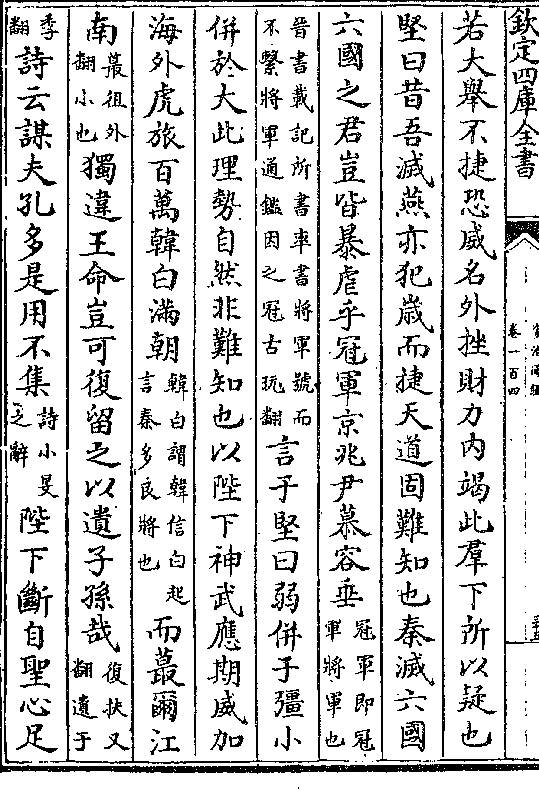 欽定四庫全書
卷一百四
若大舉不捷恐威名外挫財力内竭此羣下所以疑也
堅曰昔吾滅燕亦犯歲而捷天道固難知也秦滅六國
六國之君豈皆暴虐乎冠軍京兆尹慕容垂
冠軍即冠
軍將軍也
晉書載記所書率書將軍號而
不繫將軍通鑑因之冠古玩翻
言于堅曰弱併于彊小
併於大此理勢自然非難知也以陛下神武應期威加
海外虎旅百萬韓白滿朝
韓白謂韓信白起
言秦多良將也
而蕞爾江
南
蕞徂外
翻小也
獨違王命豈可復留之以遺子孫哉
復扶又
翻遺于
季
翻
詩云謀夫孔多是用不集
詩小旻
之辭
陛下斷自聖心足